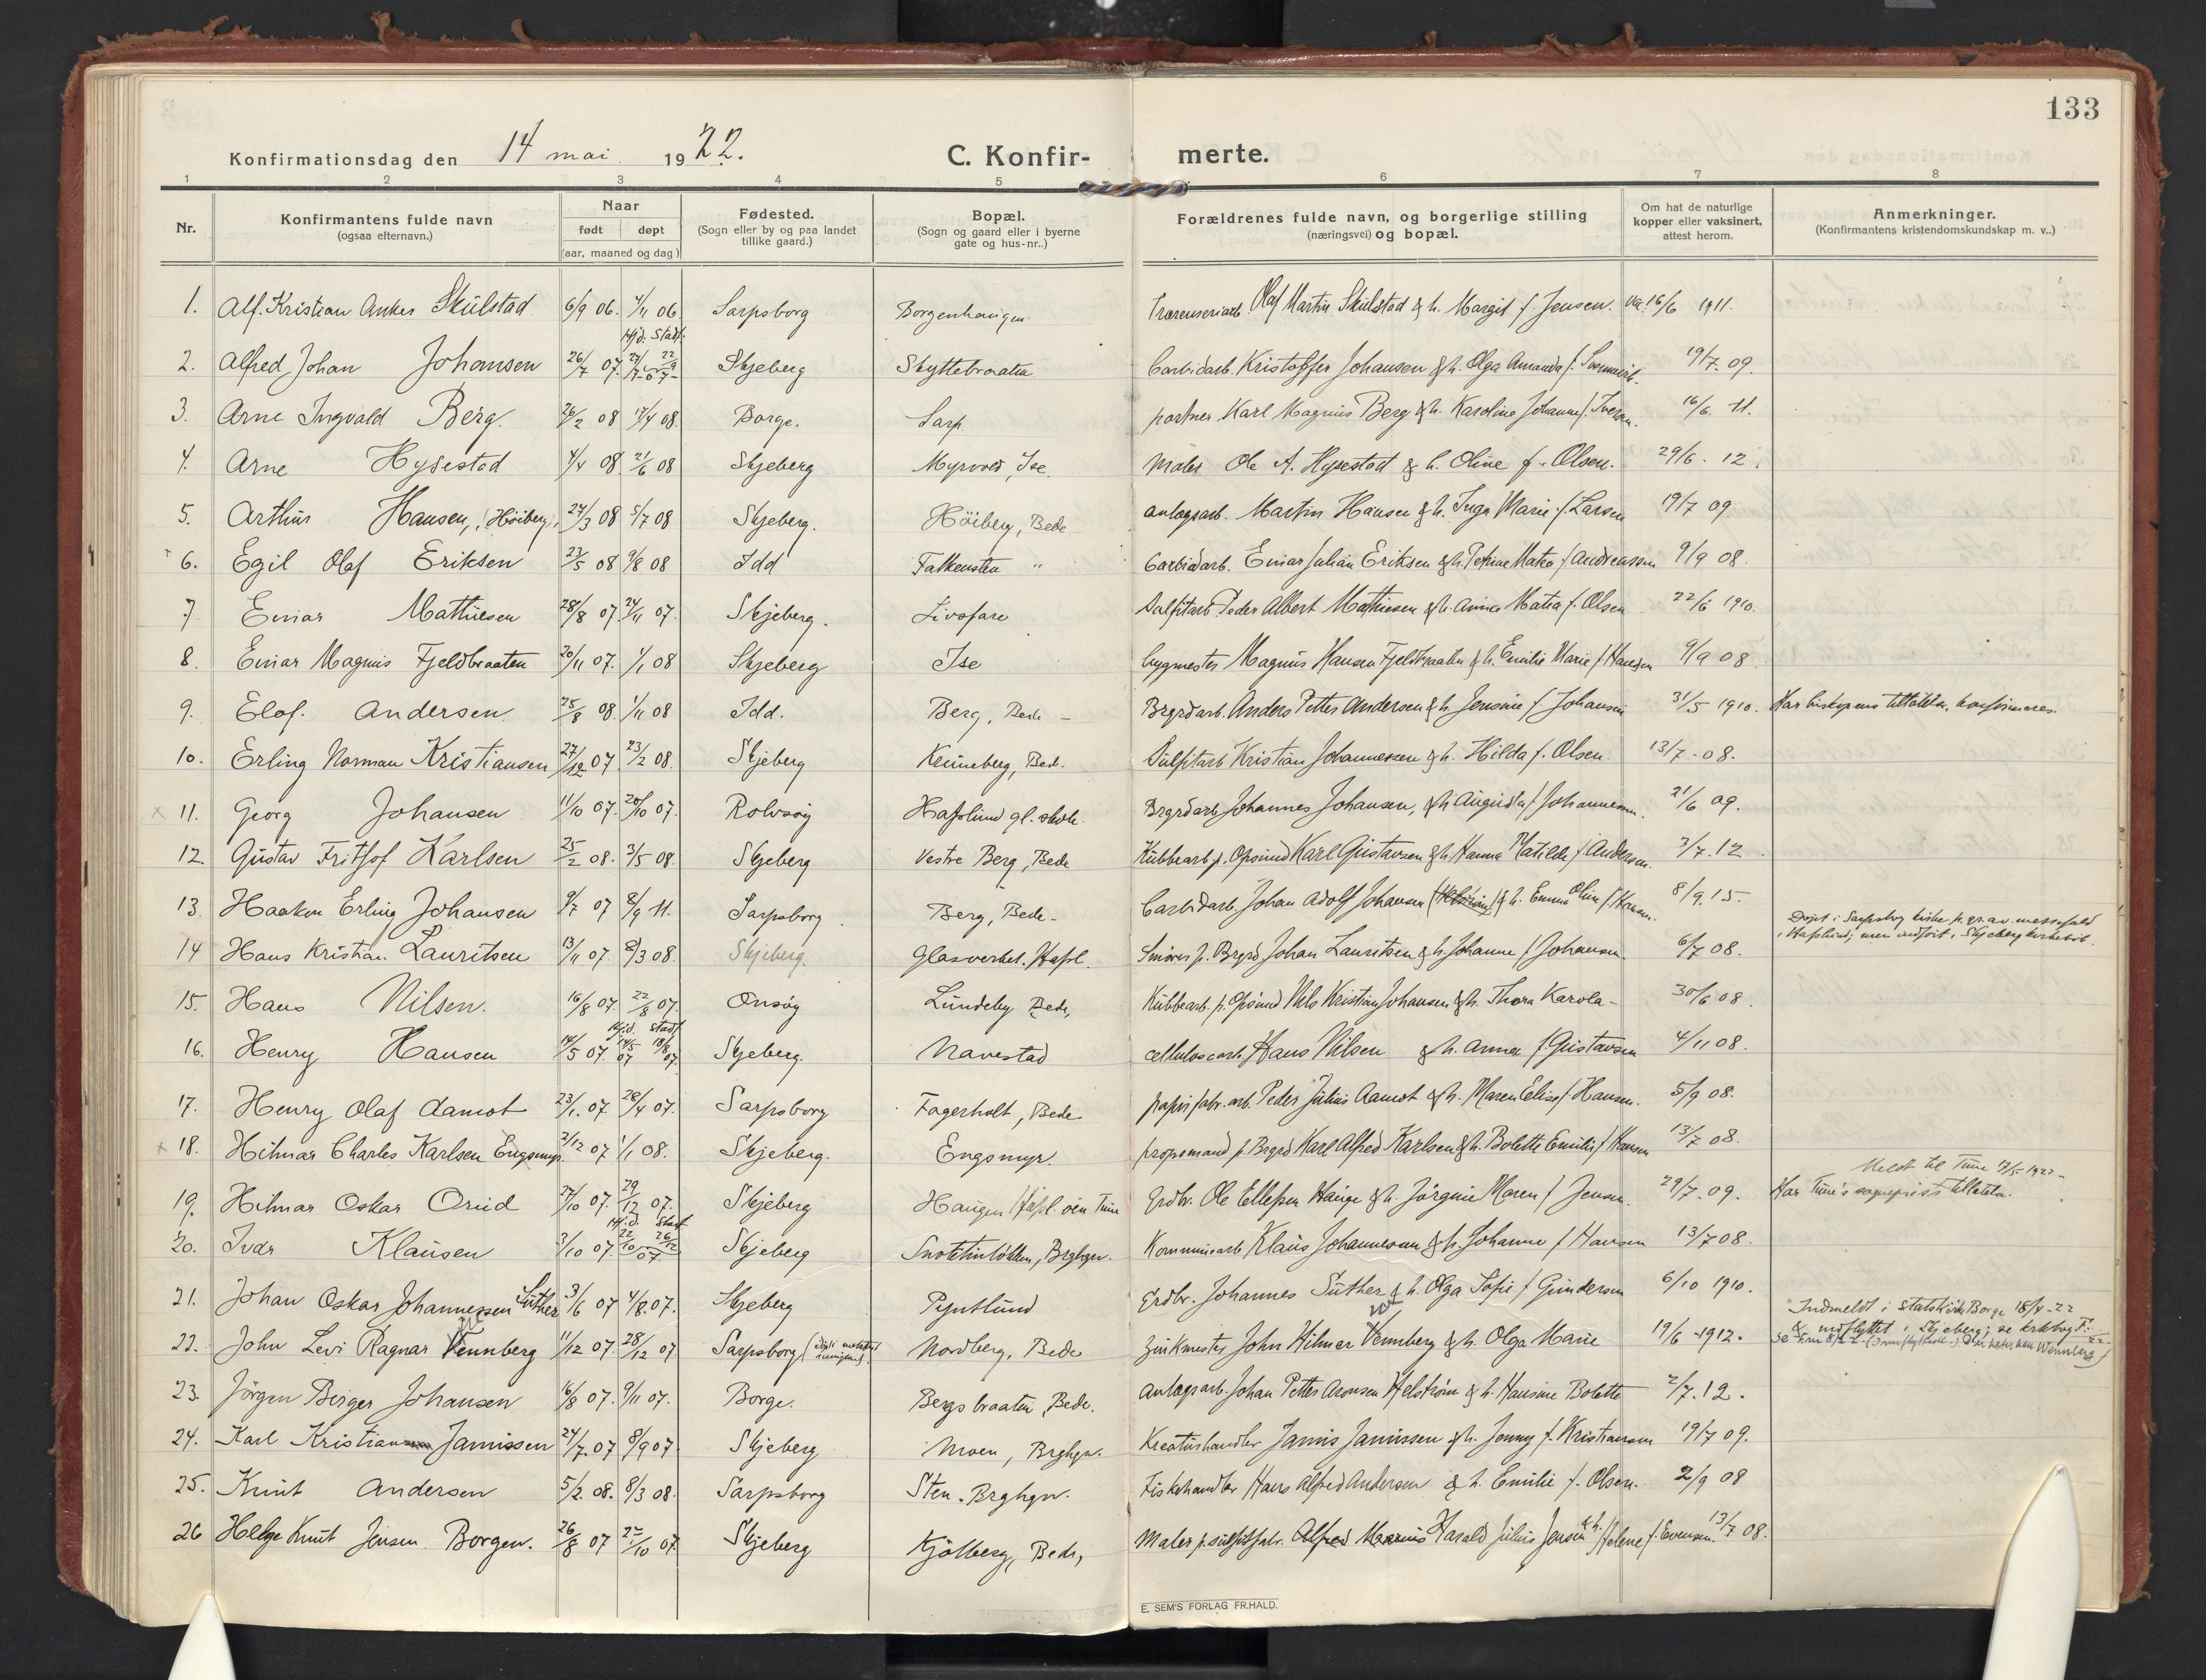 133
Konfirmationsdag den 14 mai 1922.
C. Konfir- merte.
1 2 3 4 5 6 7 8
Nr.
Konfirmantens fulde navn
(ogsaa efternavn.)
Naar
født døpt
(aar, maaned og dag)
Fødested.
(Sogn eller by og paa landet
tillike gaard.)
Bopæl.
(Sogn og gaard eller i byerne
gate og hus-nr..)
Forældrenes fulde navn, og borgerlige stilling
(næringsvei) og bopæl.
Om hat de naturlige
kopper eller vaksinert,
attest herom.
Anmerkninger.
(Konfirmantens kristendomskundskap m. v..)
1. Alf. Kristian Anker Skulstad 6/9 06. 4/11 06 Sarpsborg Borgenhaugen Olaf Martin Skulstad & h. Margit f. Jensen. 16/6 1911.
Hjd. Stadf.
2. Alfred Johan Johansen 26/7 07. Skjeberg Skyttebraaten Carbidarb. Kristoffer Johansen & h. Olga Amanda f. 19/7. 09.
3. Arne Ingvald Berg. 26/2 08 17/4 08. Borge. Sarp portner Karl Magnus Berg & h. Karoline Johanne f. Iversen. 16/6. 11.
4. Arne Hysestad 4/4 08. 21/6 08 Skjeberg Myrvold, Ise. Maler Ole A. Hysestad & h. Oline f. Olsen. 29/6. 12.
5. Arthur Hansen, (Höiberg). 27/3 08 5/7 08 Skjeberg. Höiberg, Bede anlægsarb. Martin Hansen & h. Inga Marie f. Larsen 19/7 09
6. Egil Olaf Eriksen 23/5 08 9/8 08 Idd Falkensten " Carbidarb. Einar Julian Eriksen & h. Petrine Matea f. Andreassen 9/9 08.
7. Einar Mathiesen 28/8 07. 24/11 07. Skjeberg. Livofare Sulfitarb. Peder Albert Mathiesen & h. Anna Matea f. Olsen 22/6 1910.
8. Einar Magnus Fjeldbraaten 20/11 07. 1/1 08 Skjeberg Ise bygmester Magnus Hansen Fjeldbraaten & h. Emilie Marie f. Hansen 9/9 08.
9. Elof. Andersen 25/8 08. 1/11 08 Idd. Berg, Bede Brgrdarb. Anders Petter Andersen & h. Jensine f. Johansen 31/5 1910. Har biskopens tillatelse, konfirmeres.
10. Erling Norman Kristiansen 27/12 07. 23/2 08. Skjeberg Kruneberg, Bed. Sulfitarb Kristian Johannessen & h. Hilda f. Olsen. 13/7-08.
11. Georg Johansen 11/10 07. 20/10 07. Rolvsøy Hafslund gl. skole. Brgrdarb Johannes Johansen, & h. Augusta f. Johannesen. 21/6 09.
12. Gustav Fritjof Karlsen 25/2 08. 3/5 08. Skjeberg Vestre Berg, Bede Kubbearb. p. Opsund Karl Gustavsen & h. Hanna Matilde f. Andersen. 3/7.12
13. Haakon Erling Johansen 9/7 07 8/9 11. Sarpsborg Berg, Bede- Carbidarb Johan Adolf Johansen & h. Emma Oline f. Hansen. 8/9.15.
Døpt i Sarpsborg kirke p. gr. av messefald
i Hafslund; men indført i Skjeberg kirkebok.
14 Hans Kristian Lauritsen 13/11 07. 8/3 08. Skjeberg. Glasverket. Hafsl. Smörer p. Brgrd Johan Lauritsen & h. Johanne f. Johansen. 6/7 08.
15. Hans Nilsen. 16/8 07. 22/8 07. Onsøy Lundeby Bede, Kubbearb. p. Opsund Nils Kristian Johansen & h. Thora Karola- 30/6 08.
Hjd. stadf.
16. Henry Hansen 14/5 07. Skjeberg. Navestad cellulosearb. Hans Nilsen & h. Anna f. Gustavsen 4/11 08.
17. Henry Olaf Aamot 23/1. 07. 28/4 07. Sarpsborg Fagerholt, Bede papirfabr. arb. Peder Julius Aamot & h. Maren Elise f. Hansen. 5/9 08.
18. Hilmar Charles Karlsen Engsmyr. 2/12 07 1/1 08. Skjeberg. Engsmyr. propsmand p Brgrd Karl Alfred Karlsen & h. Bolette Emilie f. Hansen 13/7 08.
Meldt til Tune 17/5 1922-
19. Hilmar Oskar Orud 27/10 07. 29/12 07. Skjeberg Haugen Hafsl. oin Tune Grdbr. Ole Ellefsen Hauge & h. Jörgine Maren f. Jensen. 29/7. 09. Har Tune's sogneprests tillatelse.
Hjd. Stadf.
20. Ivar Klausen 3/10 07. Skjeberg Kommunearb Klaus Johannesen & h. Johanne f. Hansen 13/7 08.
21. Johan Oskar Johannessen Suther 3/6 07 4/8.07. Skjeberg Pyntlund Grdbr. Johannes Suther & h. Olga Sofie f. Gundersen 6/10 1910.
Indmeldt i statskirk Borge 18/4-22
& indflyttet i Skjeberg; se kirkbog F.
22. John Levi Ragnar Vennberg 11/12 07. 28/12 07. Sarpsborg Nordberg, Bede John Hilmar Vennberg & h. Olga Marie 19/6-1912.
23. Jörgen Berger Johansen 16/8 07. 9/11 07. Borge. Bergsbraaten, Bede. Anlægsarb. Johan Petter Aronsen Helström & h. Hansine Bolette 2/7.12.
24. Karl Kristian Janissen 24/7.07 8/9 07 Skjeberg Moen, Brghgn. Kreaturhandler Janis Janissen & h. Jenny f. Kristiansen 19/7 09.
25. Knut Andersen 5/2. 08. 8/3 08. Sarpsborg Sten. Brghgn. Fiskehandler Hans Alfred Andersen & h. Emilie f. Olsen. 2/9 08
26 Helge Knut Jensen Borgen. 26/8 07 27/10 07. Skjeberg Kjölberg, Bede, Maler p. sulfitfabr. Alfred Marius Harald Julius Jensen & h. Helene f. Evensen. 13/7 08.
E. SEM'S FORLAG FR.HALD.